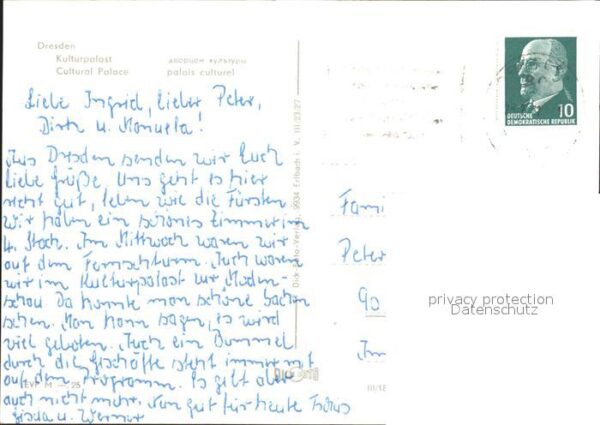 Dresden
Kulturpalast дворцом культуры
Cultural Palace palais culturel
DEUTSCHE
DEMOKRATISCHE REPUBLIK
10
Liebe Ingrid, lieber Peter,
Dirk u. Manuela!
Aus Dresden senden wir Euch
liebe Grüße. Uns geht es hier
recht gut, leben wie die Fürsten
Wir haben ein schönes Zimmer im
4. Stock. Am Mittwoch waren wir
auf dem Fernsehturm. Auch waren
wir im Kulturpalast zur Moden-
schau Da konnte man schöne Sachen
sehen. Man kann sagen, es wird
viel geboten. Auch ein Bummel
durch die Geschäfte steht immer mit
auf dem Programm. Es gibt aber
auch nicht mehr. Nun gut für heute Tschüs
Gisela u. Werner
Fami
Peter
90
privacy protection
Datenschutz
-Verlag, 9934 Erlbach i. V. III/23/27
EVP M -,25
III/18